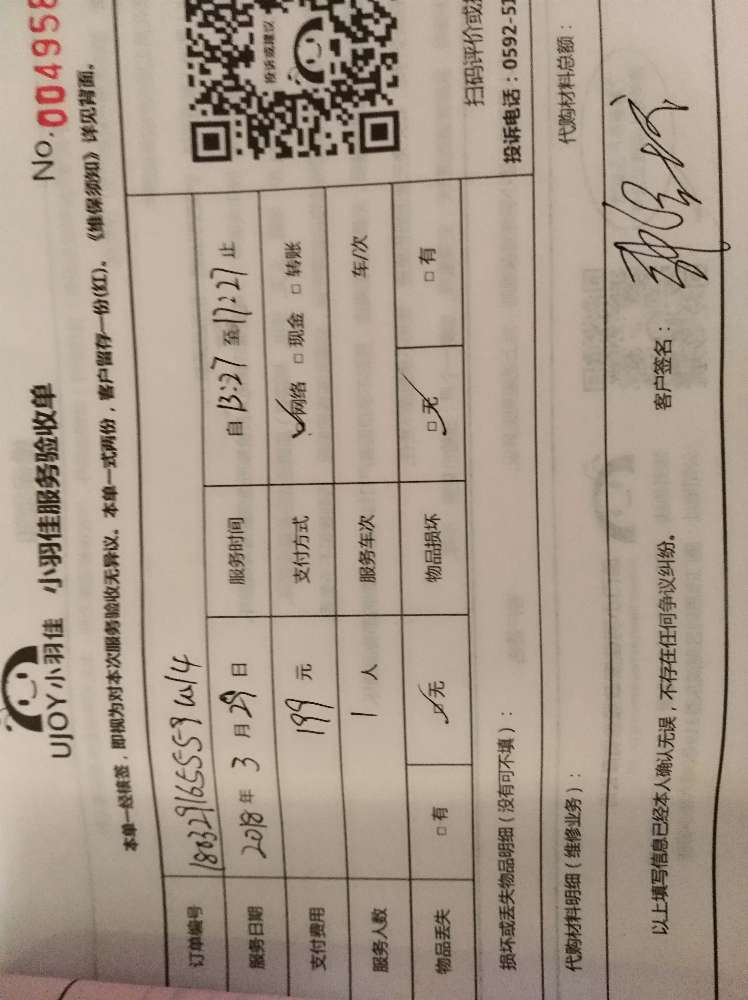 UJOY小羽佳 小羽佳服务验收单
No.004958
本单一经核签，即视为对本次服务验收无异议。本单一式两份，客户留存一份(红)。《维保须知》详见背面。
订单编号
服务日期 2018 年 3 月 29 日 服务时间 自 13:27 至 17:27 止
支付费用 199 元 支付方式 ☑网络 □现金 □转账
服务人数 1 人 服务车次 车/次
物品丢失 □有 ☑无 物品损坏 ☑无 □有
投诉或建议
扫码评价或
投诉电话：0592-51
损坏或丢失物品明细（没有可不填）：
代购材料明细（维修业务）： 代购材料总额：
以上填写信息已经本人确认无误，不存在任何争议纠纷。 客户签名：